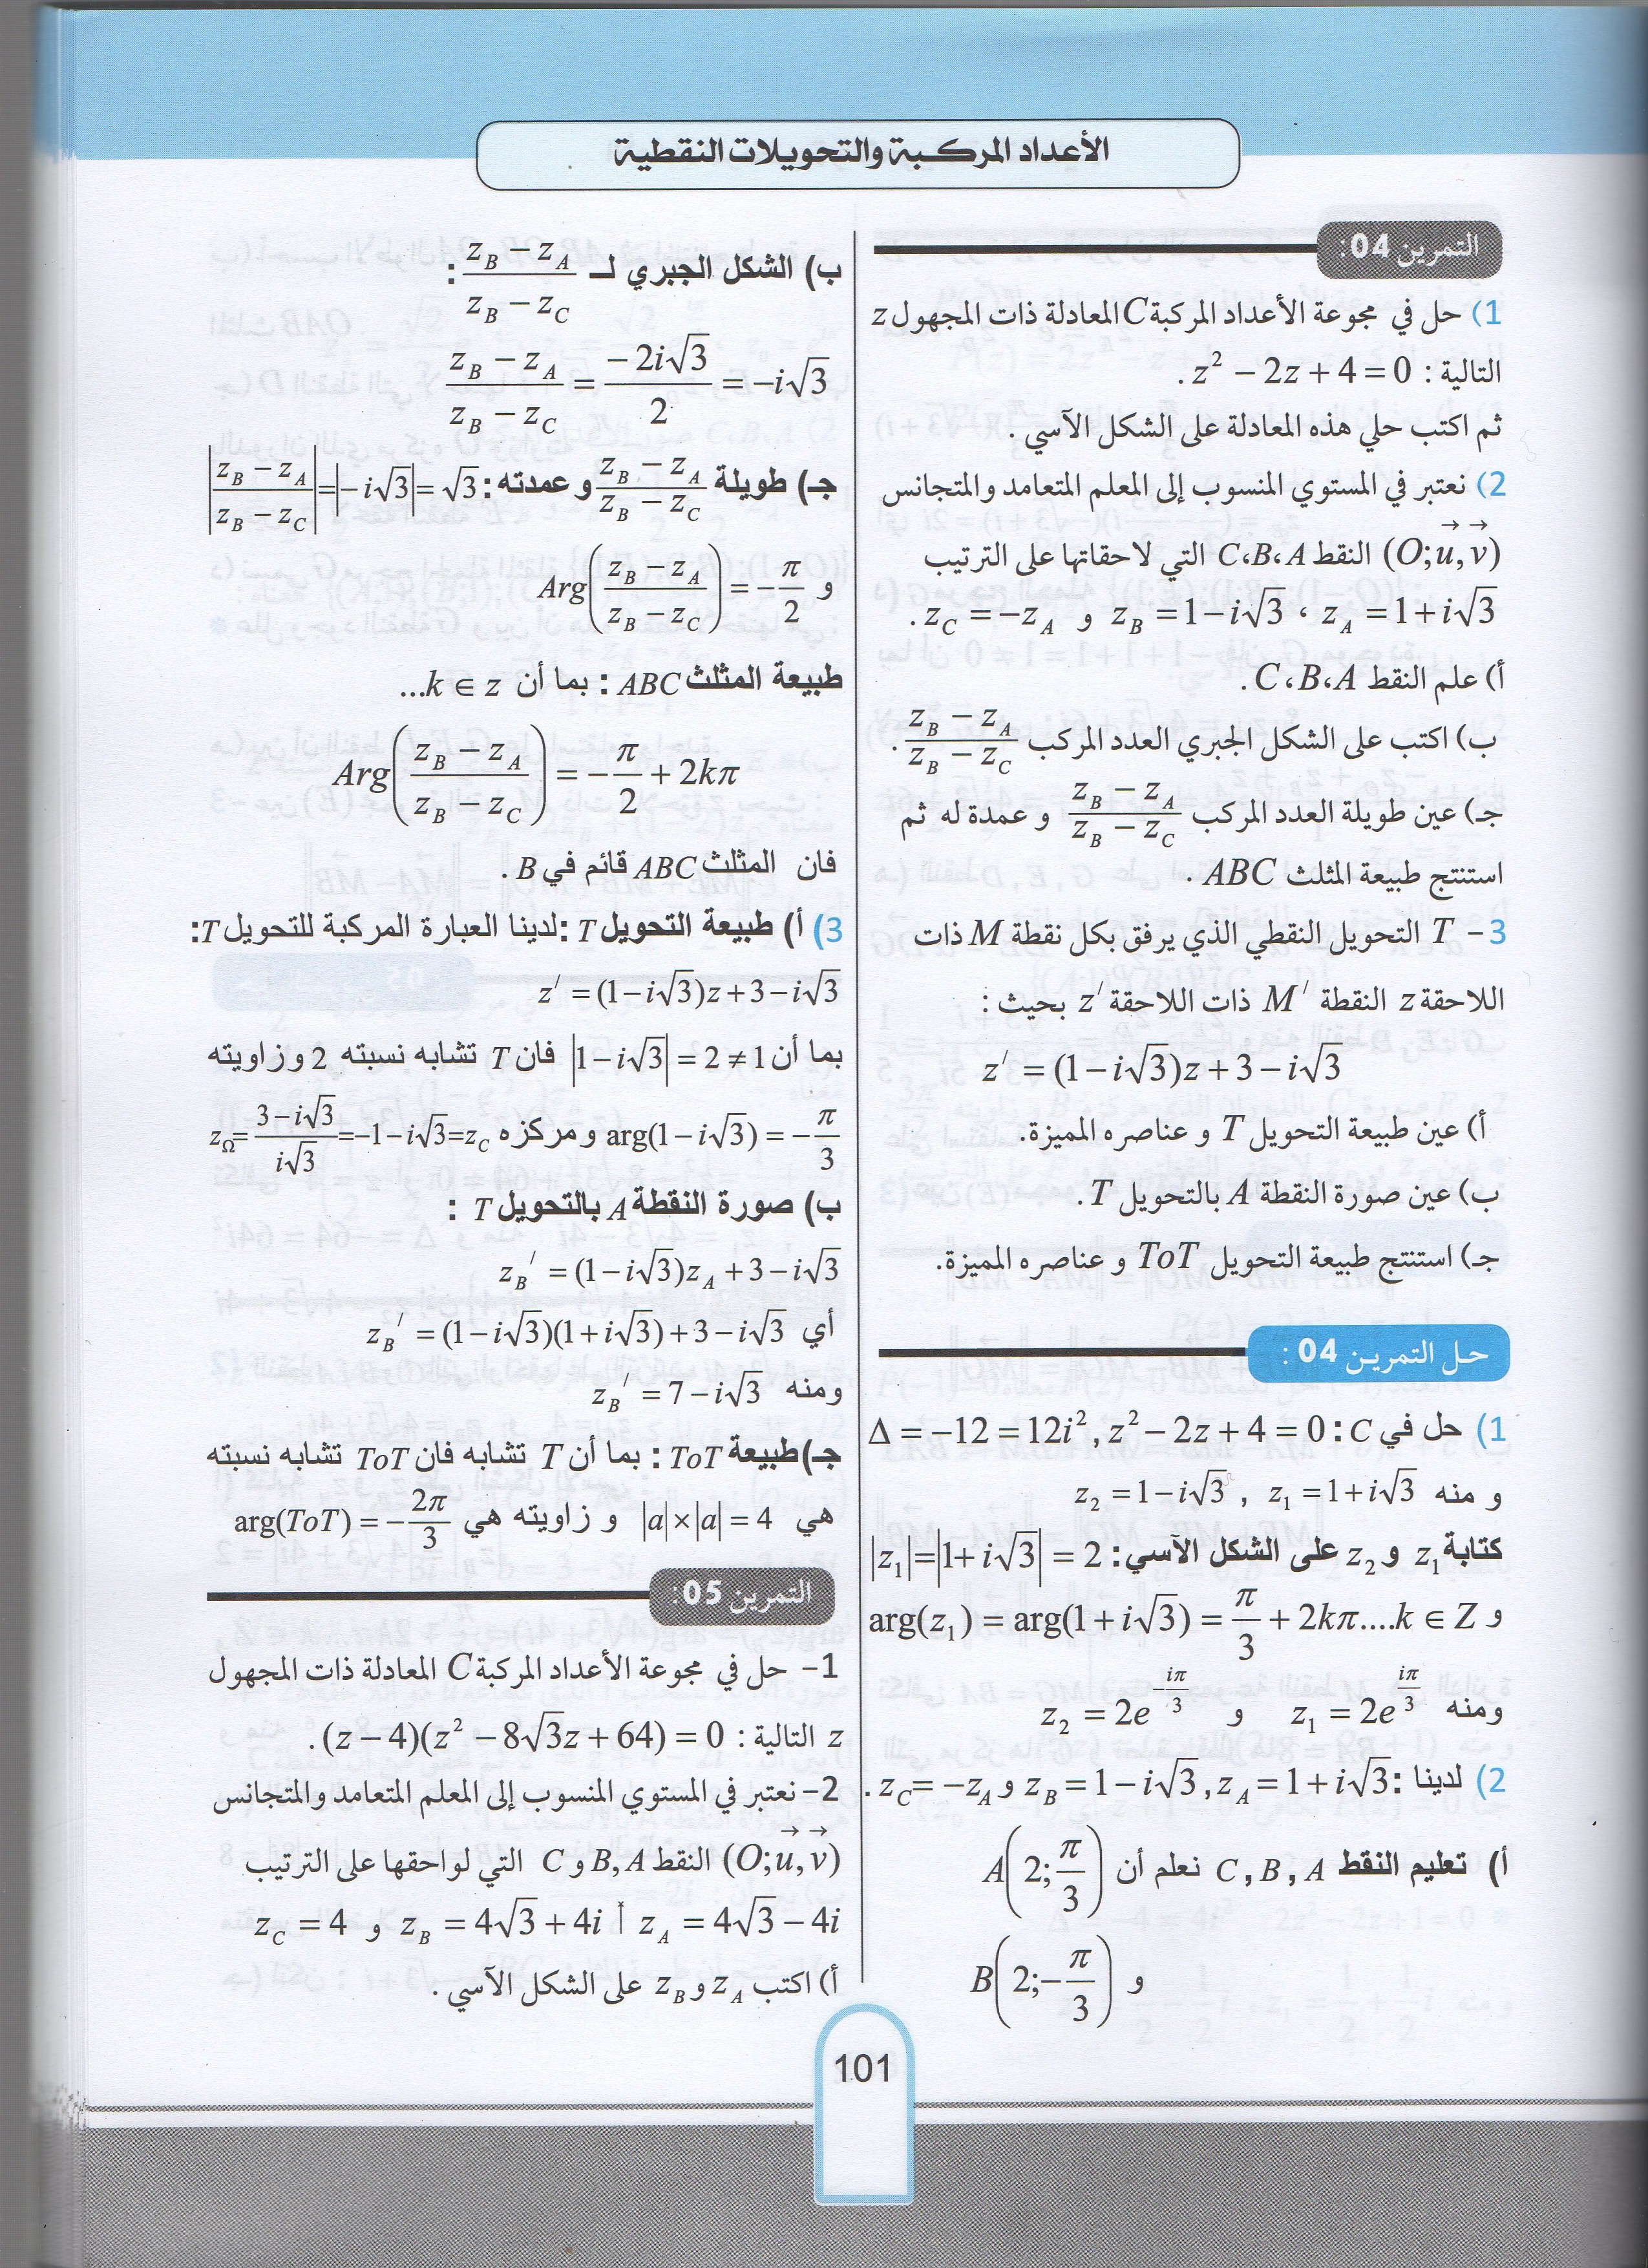 الأعداد المركبة والتحويلات النقطية
التمرين 04:
1) حل في مجوعة الأعداد المركبة C المعادلة ذات المجهول z
التالية : z² − 2z + 4 = 0 .
ثم اكتب حلي هذه المعادلة على الشكل الآسي .
2) نعتبر في المستوي المنسوب إلى المعلم المتعامد والمتجانس
(O; u⃗, v⃗) النقط C،B،A التي لاحقاتها على الترتيب
z_A = 1 + i√3 ، z_B = 1 − i√3 و z_C = −z_A .
أ) علم النقط C،B،A .
ب) اكتب على الشكل الجبري العدد المركب (z_B − z_A)/(z_B − z_C) .
جـ) عين طويلة العدد المركب (z_B − z_A)/(z_B − z_C) و عمدة له ثم
استنتج طبيعة المثلث ABC .
3 - T التحويل النقطي الذي يرفق بكل نقطة M ذات
اللاحقة z النقطة M′ ذات اللاحقة z′ بحيث :
z′ = (1 − i√3)z + 3 − i√3
أ) عين طبيعة التحويل T و عناصره المميزة.
ب) عين صورة النقطة A بالتحويل T .
جـ) استنتج طبيعة التحويل ToT و عناصره المميزة.
حل التمرين 04 :
1) حل في C : Δ = −12 = 12i² , z² − 2z + 4 = 0
و منه z₂ = 1 − i√3 , z₁ = 1 + i√3
كتابة z₁ و z₂ على الشكل الآسي : |z₁| = |1 + i√3| = 2
و arg(z₁) = arg(1 + i√3) = π/3 + 2kπ....k ∈ Z
ومنه z₁ = 2e^(iπ/3) و z₂ = 2e^(−iπ/3)
2) لدينا : z_B = 1 − i√3 , z_A = 1 + i√3 و z_C = −z_A .
أ) تعليم النقط C , B , A نعلم أن A(2; π/3)
و B(2; −π/3)
ب) الشكل الجبري لـ (z_B − z_A)/(z_B − z_C) :
(z_B − z_A)/(z_B − z_C) = (−2i√3)/2 = −i√3
جـ) طويلة (z_B − z_A)/(z_B − z_C) و عمدته : |(z_B − z_A)/(z_B − z_C)| = |−i√3| = √3
و Arg((z_B − z_A)/(z_B − z_C)) = −π/2
طبيعة المثلث ABC : بما أن k ∈ z...
Arg((z_B − z_A)/(z_B − z_C)) = −π/2 + 2kπ
فان المثلث ABC قائم في B .
3) أ) طبيعة التحويل T : لدينا العبارة المركبة للتحويل T :
z′ = (1 − i√3)z + 3 − i√3
بما أن |1 − i√3| = 2 ≠ 1 فان T تشابه نسبته 2 و زاويته
arg(1 − i√3) = −π/3 و مركزه z_Ω = (3 − i√3)/(i√3) = −1 − i√3 = z_C
ب) صورة النقطة A بالتحويل T :
z_B′ = (1 − i√3)z_A + 3 − i√3
أي z_B′ = (1 − i√3)(1 + i√3) + 3 − i√3
ومنه z_B′ = 7 − i√3
جـ) طبيعة ToT : بما أن T تشابه فان ToT تشابه نسبته
هي |a| × |a| = 4 و زاويته هي arg(ToT) = −2π/3
التمرين 05 :
1- حل في مجوعة الأعداد المركبة C المعادلة ذات المجهول
z التالية : (z − 4)(z² − 8√3z + 64) = 0 .
2- نعتبر في المستوي المنسوب إلى المعلم المتعامد والمتجانس
(O; u⃗, v⃗) النقط B, A و C التي لواحقها على الترتيب
z_A = 4√3 − 4i أ z_B = 4√3 + 4i و z_C = 4
أ) اكتب z_A و z_B على الشكل الآسي .
101